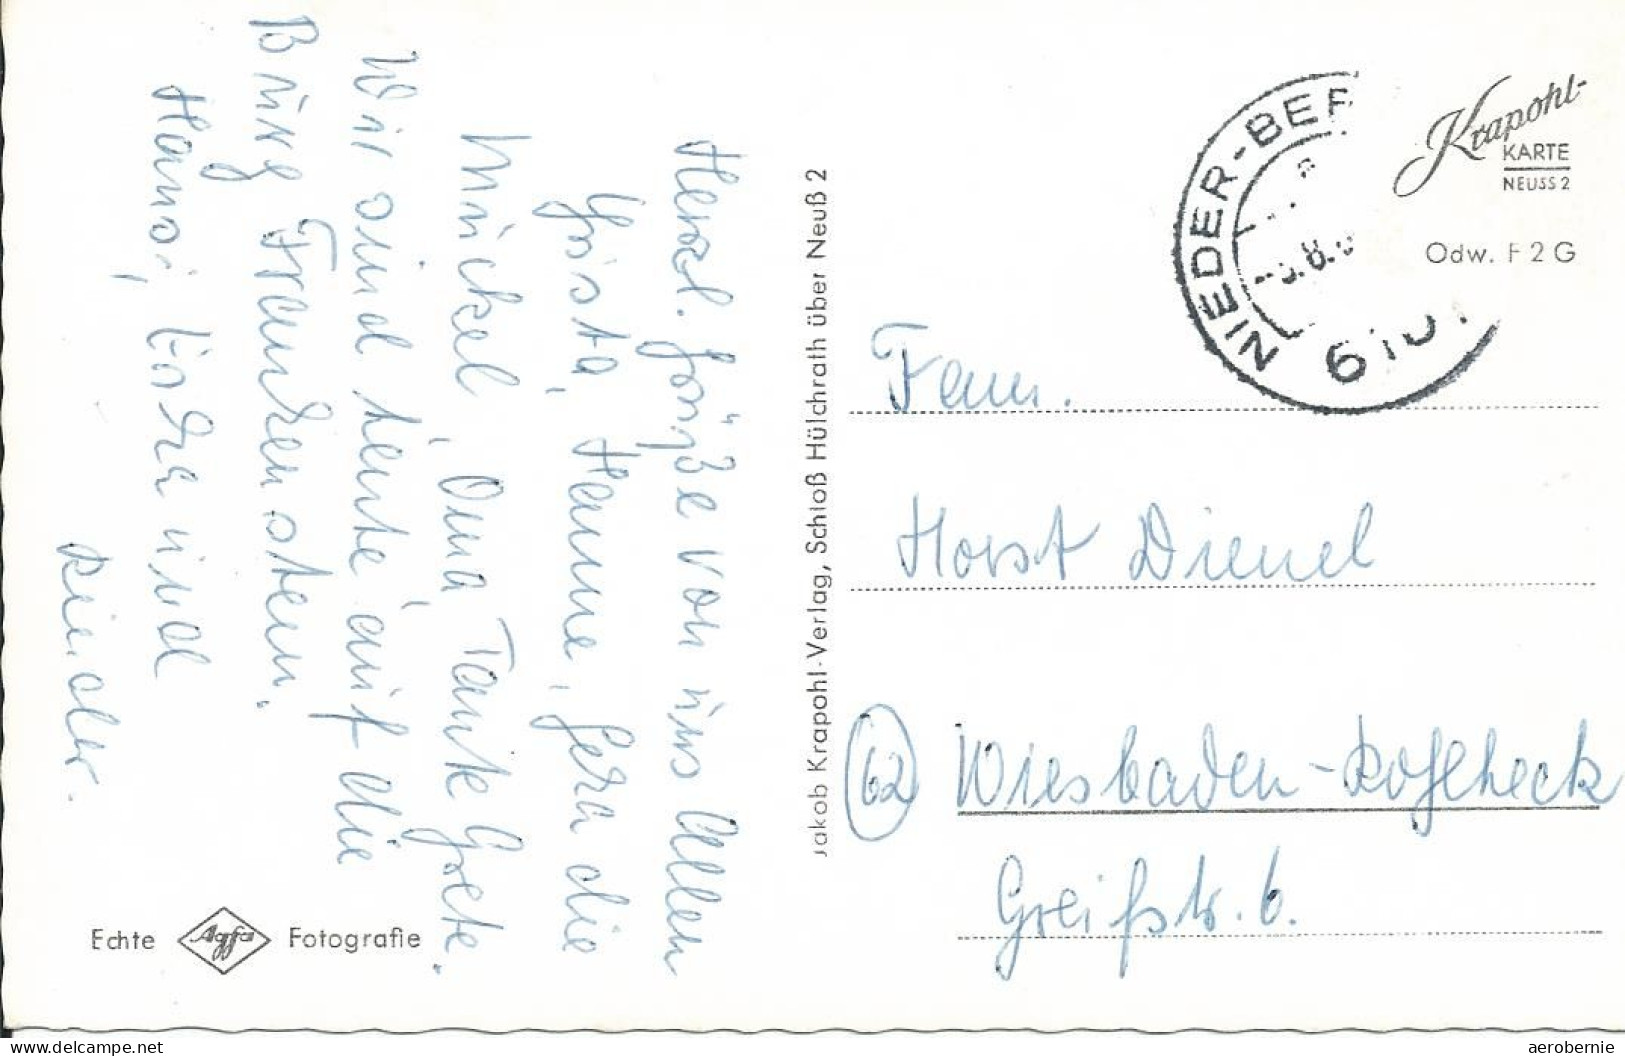 Herzl. Grüße von uns Allen
Gista, Hanne, Gera die
Mickel, Oma, Tante Grete.
Wir sind heute auf die
Burg Frankenstein.
Hansi, Erika und
Kinder.
Jakob Krapohl-Verlag, Schloß Hülchrath über Neuß 2
Echte Agfa Fotografie
NIEDER-BEE
.8.
610
Krapohl-
KARTE
NEUSS 2
Odw. F 2 G
Fam.
Horst Dienel
62 Wiesbaden-Kohlheck
Greifstr. 6.
www.delcampe.net
aerobernie